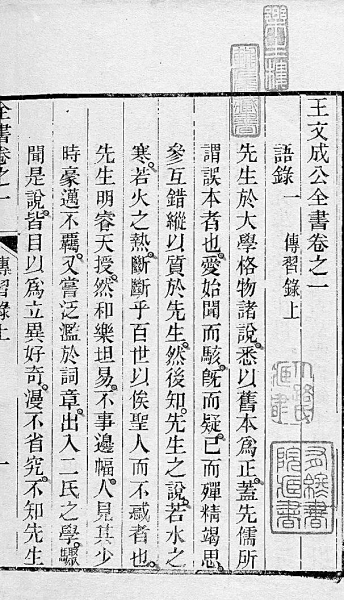 王文成公全書卷之一
語錄一 傳習錄上
先生於大學格物諸說悉以舊本爲正蓋先儒所
謂誤本者也愛始聞而駭旣而疑已而殫精竭思
參互錯縱以質於先生然後知先生之說若水之
寒若火之熱斷斷乎百世以俟聖人而不惑者也
先生明睿天授然和樂坦易不事邊幅人見其少
時豪邁不羈又嘗泛濫於詞章出入二氏之學驟
聞是說皆目以爲立異好奇漫不省究不知先生
全書卷之一 傳習錄上 一